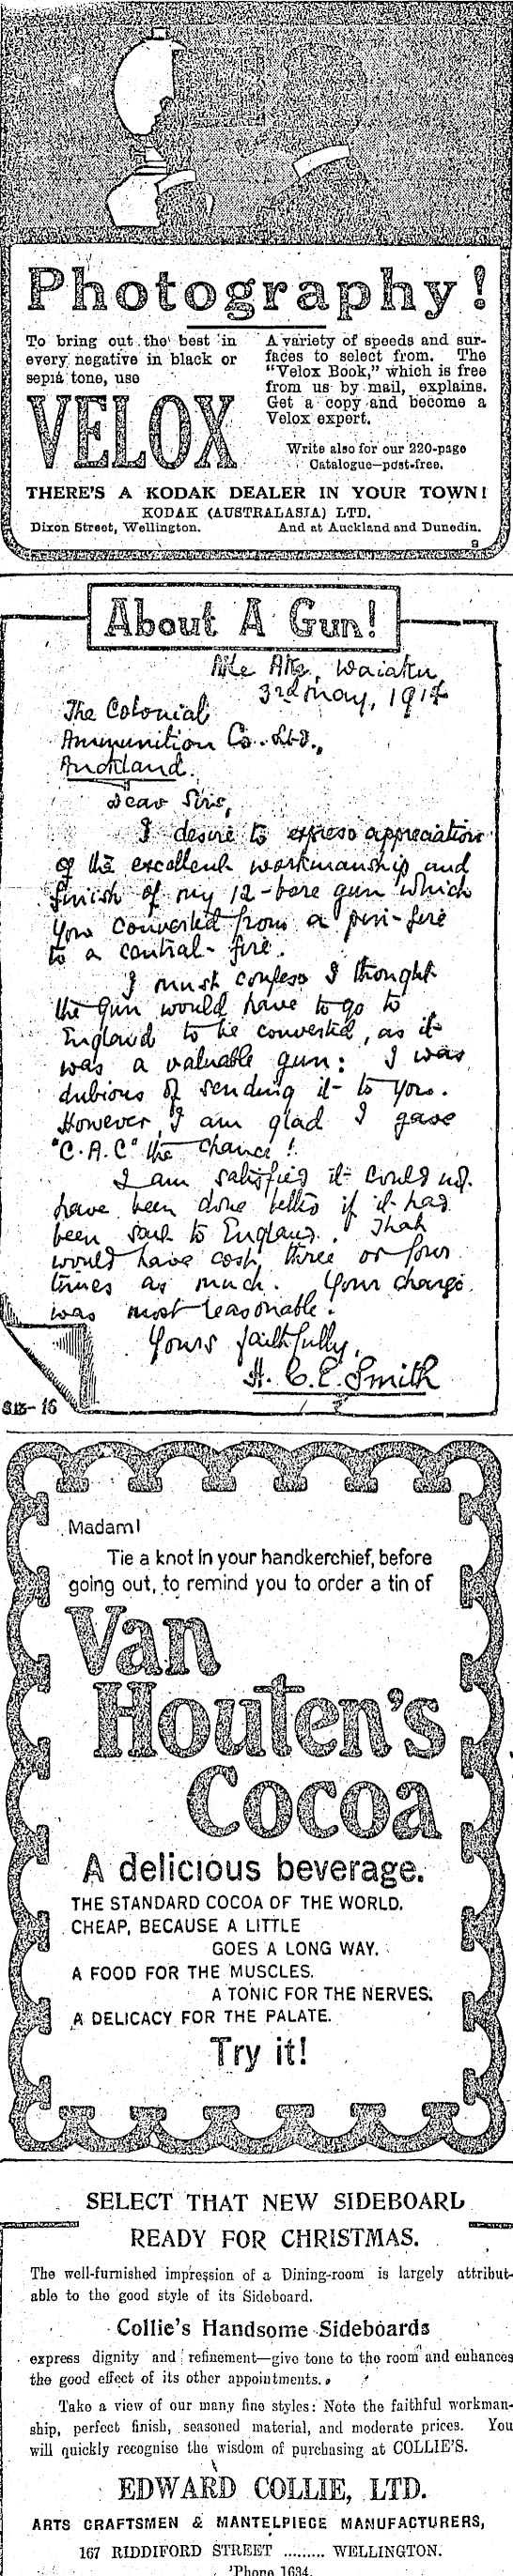 Photography!
To bring out the best in
every negative in black or
sepia tone, use
VELOX
A variety of speeds and sur-
faces to select from. The
"Velox Book," which is free
from us by mail, explains.
Get a copy and become a
Velox expert.
Write also for our 220-page
Catalogue—post-free.
THERE'S A KODAK DEALER IN YOUR TOWN!
KODAK (AUSTRALASIA) LTD.
Dixon Street, Wellington. And at Auckland and Dunedin.
9
About A Gun!
Ake Ake, Waiaku,
3rd May, 1914
The Colonial
Ammunition Co. Ltd.,
Auckland.
Dear Sirs,
I desire to express appreciation
of the excellent workmanship and
finish of my 12-bore gun which
you converted from a pin-fire
to a central-fire.
I must confess I thought
the gun would have to go to
England to be converted, as it
was a valuable gun: I was
dubious of sending it to you.
However, I am glad I gave
"C.A.C" the chance!
I am satisfied it could not
have been done better if it had
been sent to England. That
would have cost three or four
times as much. Your charge
was most reasonable.
Yours faithfully,
H. C. E. Smith
Madam!
Tie a knot in your handkerchief, before
going out, to remind you to order a tin of
Van
Houten's
Cocoa
A delicious beverage.
THE STANDARD COCOA OF THE WORLD.
CHEAP, BECAUSE A LITTLE
GOES A LONG WAY.
A FOOD FOR THE MUSCLES.
A TONIC FOR THE NERVES.
A DELICACY FOR THE PALATE.
Try it!
SELECT THAT NEW SIDEBOARD
READY FOR CHRISTMAS.
The well-furnished impression of a Dining-room is largely attribut-
able to the good style of its Sideboard.
Collie's Handsome Sideboards
express dignity and refinement—give tone to the room and enhances
the good effect of its other appointments.
Take a view of our many fine styles: Note the faithful workman-
ship, perfect finish, seasoned material, and moderate prices. You
will quickly recognise the wisdom of purchasing at COLLIE'S.
EDWARD COLLIE, LTD.
ARTS CRAFTSMEN & MANTELPIECE MANUFACTURERS,
167 RIDDIFORD STREET ......... WELLINGTON.
'Phone 1634.